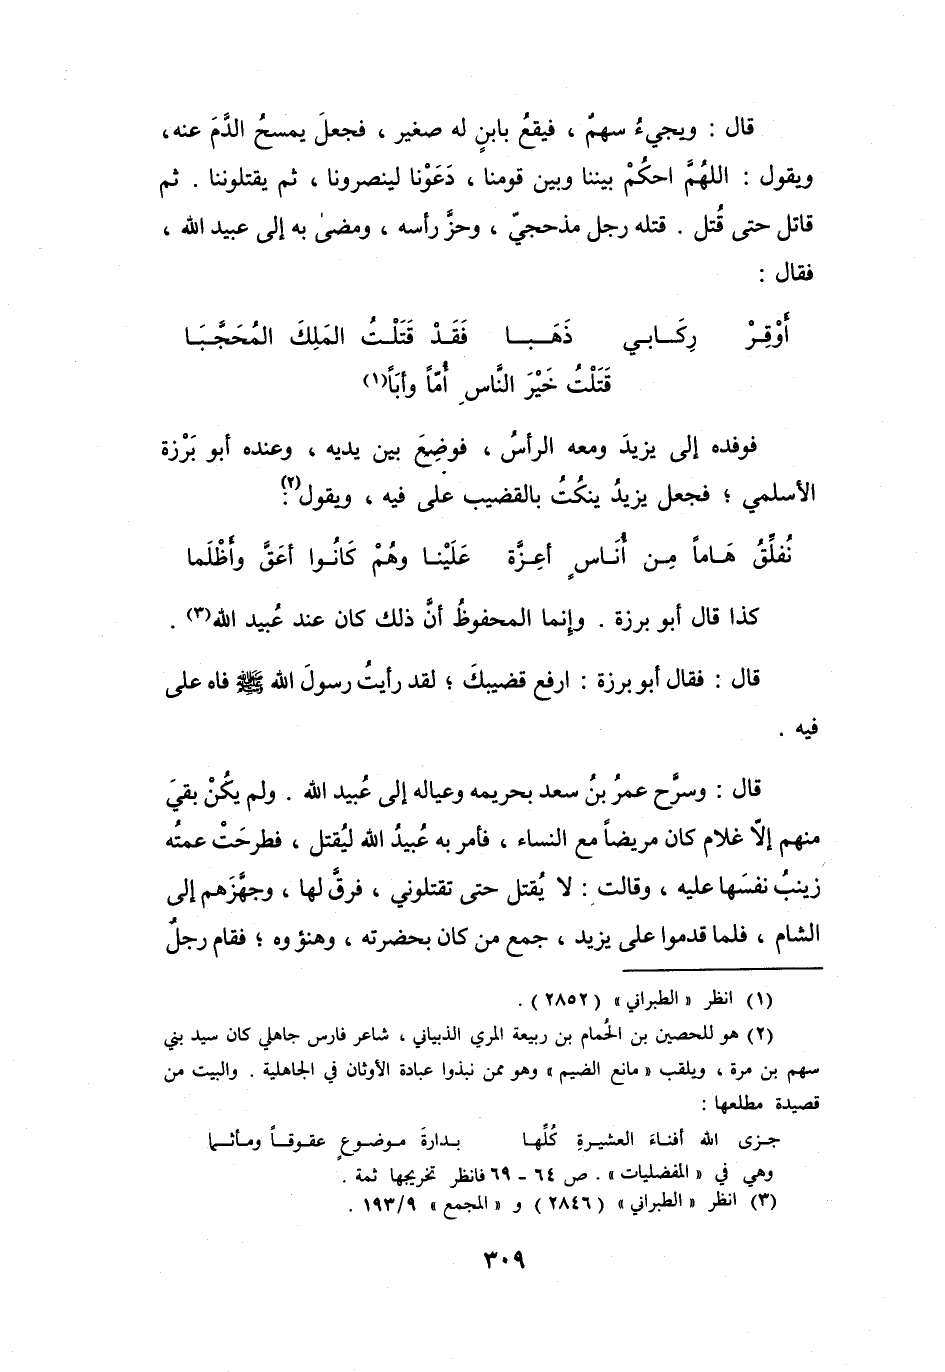 قال : ويجيءُ سهمٌ ، فيقعُ بابنٍ له صغير ، فجعلَ يمسحُ الدَّمَ عنه،
ويقول : اللهُمَّ احكُمْ بيننا وبين قومنا ، دَعَوْنا لينصرونا ، ثم يقتلوننا . ثم
قاتل حتى قُتل . قتله رجل مذحجيّ ، وحزَّ رأسه ، ومضىٰ به إلى عبيد الله ،
فقال :
أَوْقِرْ رِكَابي ذَهَبا فَقَدْ قَتَلْتُ المَلِكَ المُحَجَّبَا
قَتَلْتُ خَيْرَ النَّاسِ أُمّاً وأبَاً(١)
فوفده إلى يزيدَ ومعه الرأسُ ، فوضِعَ بين يديه ، وعنده أبو بَرْزة
الأسلمي ؛ فجعل يزيدُ ينكُتُ بالقضيب على فيه ، ويقول(٢):
نُفلِّقُ هَاماً مِن أُنَاسٍ أعِزَّة عَلَيْنا وهُمْ كَانُوا أعَقَّ وأَظْلَما
كذا قال أبو برزة . وإنما المحفوظُ أنَّ ذلك كان عند عُبيد الله(٣) .
قال : فقال أبو برزة : ارفع قضيبكَ ؛ لقد رأيتُ رسولَ الله ﷺ فاه على
فيه .
قال : وسرَّح عمرُ بنُ سعد بحريمه وعياله إلى عُبيد الله . ولم يكُنْ بقيَ
منهم إلّا غلام كان مريضاً مع النساء ، فأمر به عُبيدُ الله ليُقتل ، فطرحَتْ عمتُه
زينبُ نفسَها عليه ، وقالت : لا يُقتل حتى تقتلوني ، فرقَّ لها ، وجهَّزَهم إلى
الشام ، فلما قدموا على يزيد ، جمع من كان بحضرته ، وهنؤوه ؛ فقام رجلٌ
(١) انظر « الطبراني » (٢٨٥٢) .
(٢) هو للحصين بن الحُمام بن ربيعة المري الذبياني ، شاعر فارس جاهلي كان سيد بني
سهم بن مرة ، ويلقب « مانع الضيم » وهو ممن نبذوا عبادة الأوثان في الجاهلية . والبيت من
قصيدة مطلعها :
جزى الله أفناءَ العشيرةِ كُلِّها بدارةَ موضوعٍ عقوقاً ومأثما
وهي في « المفضليات » . ص ٦٤ - ٦٩ فانظر تخريجها ثمة .
(٣) انظر « الطبراني » (٢٨٤٦) و « المجمع » ١٩٣/٩ .
٣٠٩